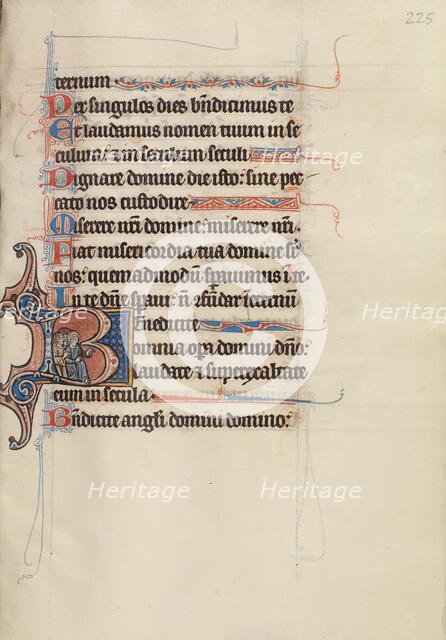 225
ternum
Per singulos dies bñdicimus te
Et laudamus nomen tuum in se
culum: et in seculum seculi
Dignare domine die isto: sine pec
cato nos custodire
Miserere nrĩ domine: miserere nrĩ.
Fiat misericordia tua domine sr̃
nos: quemadmodũ sperauimus ĩ te
In te dñe speraui: nõ cõfundar ĩ eternũ
Benedicite
omnia opera domini dño:
laudate et superexaltate
eum in secula
Bñdicite angeli domini domino:
Heritage
Heritage
Heritage
Heritage
Heritage
Heritage
Heritage